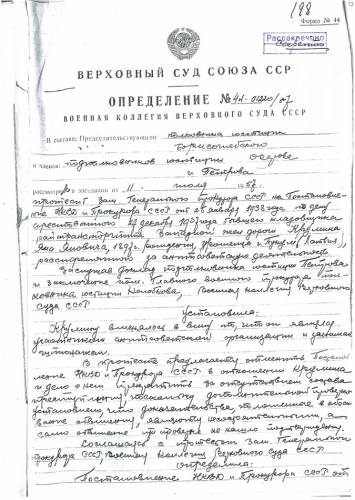 198
Форма № 44
Рассекречено
Секретно
ВЕРХОВНЫЙ СУД СОЮЗА ССР
ОПРЕДЕЛЕНИЕ № 4н-
ВОЕННАЯ КОЛЛЕГИЯ ВЕРХОВНОГО СУДА СССР
В составе: Председательствующего полковника юстиции
Борисоглебского
и членов: подполковников юстиции
и Петрова
рассмотрев в заседании от 11 июля 1957 г.
протест зам. Генерального прокурора СССР на постановле-
ние НКВД и Прокурора СССР от 25 января 1938 года по делу
арестованного декабря 1937 года бывшего кладовщика
Западной жел. дороги Круминa
Яна Яновича, 189 г. рождения,
расстрелянного за антисоветскую деятельность
Заслушав доклад подполковника юстиции Петрова
и заключение пом. Главного военного прокурора пол-
ковника юстиции Военная коллегия Верховного
суда СССР
установила:
вменялось в вину то, что он являлся
участником антисоветской организации и занимался
шпионажем.
В протесте предлагается отменить постанов-
ление НКВД и Прокурора СССР в отношении
и дело о нем прекратить за отсутствием состава
преступления, поскольку дополнительной проверкой
установлено, что доказательства, положенные в обосно-
вание обвинения, являются несостоятельными, а
само обвинение при проверке не нашло подтверждения.
Соглашаясь с протестом зам. Генерального
прокурора СССР, Военная коллегия Верховного суда СССР
определила:
Постановление НКВД и Прокурора СССР от